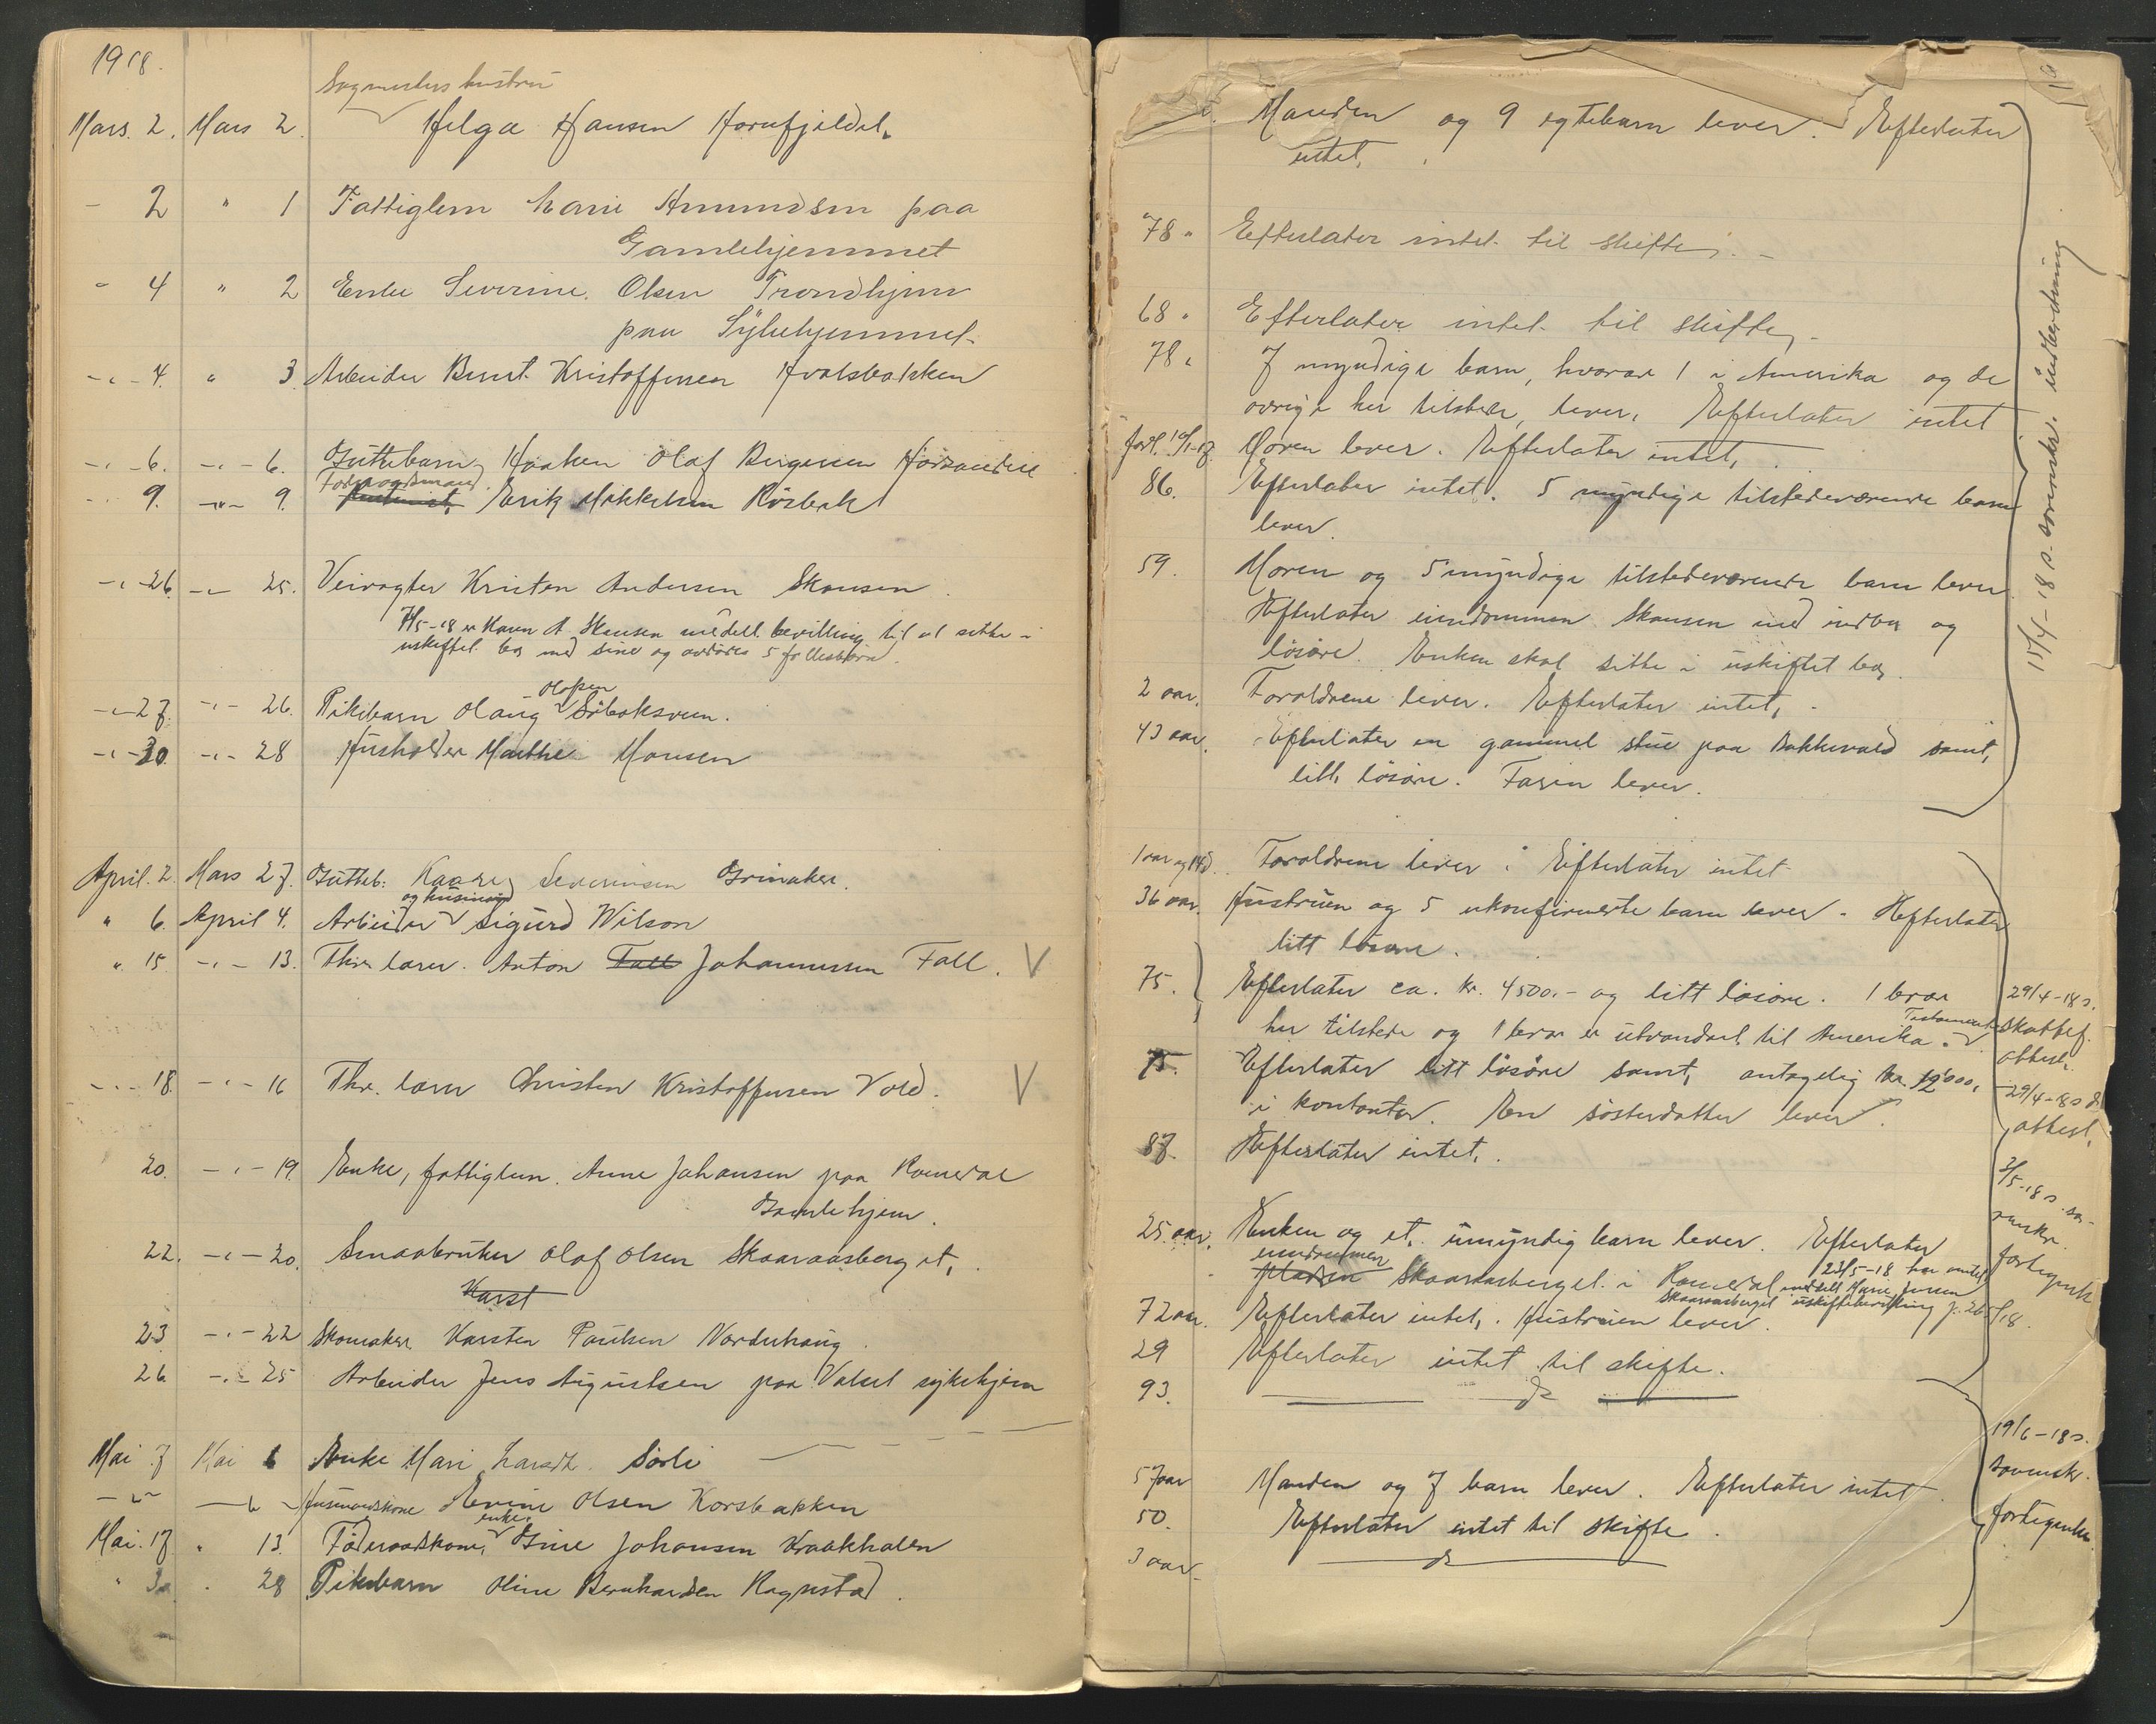 1918.
Sagmesters hustru
Mars. 2. Mars 2. Helga Hansen Hornfjeldet.
- 2 " 1 Fattiglem Marie Amundsen paa
Gamlehjemmet
- 4 " 2 Enke Severine Olsen Trondhjem
paa Sykehjemmet.
-"- 4. " 3. Arbeider Bernt Kristoffersen Hvalsbakken
-"- 6. -"- 6. Guttebarn Haaken Olaf Birgersen
Föderaadsmand
9. -"- 9. Erik Mikkelsen Rösbak
-"- 26. -"- 25. Veivogter Kristen Andersen Skansen.
7/5-18 er Karen A. Skansen meddelt bevilling til at sitte i
uskiftet bo med sine og avdödes 5 fællesbörn.
Olsen
-"- 27. -"- 26. Pikebarn Olaug Sibeksveen.
-"- 30. -"- 28 Husholder Marthe Monsen
April. 2. Mars 27. Gutteb: Kaare Severinsen Grinaker.
og husmand
" 6. April 4. Arbeider Sigurd Wilson
" 15. -"- 13. Fhv. lærer. Anton Fall Johannessen Fall. V
-"- 18. -"- 16 Fhv. lærer Christen Kristoffersen Vold. V
20. -"- 19. Enke, fattiglem. Anne Johansen paa Romedal
Gamlehjem.
22. -"- 20. Smaabruker Olaf Olsen Skaaraasberget.
Karst
23 -"- 22 Skomaker Karsten Paulsen Nordenhaug.
26 -"- 25 Arbeider Jens Augustsen paa Valset sykehjem
Mai 7 Mai 6 Enke Mari Larsdt. Sörli
-"- -"- Husmandskone Evine Olsen Korsbakken
enke
Mai. 17 " 13. Föderaadskone, Gine Johansen Kraakhalen
" 30. " 28 Pikebarn Oline Bernhardsen Ragnstad.
Manden og 9 egtebarn lever. Efterlater
intet.
78 " Efterlater intet til skifte. -
68 " Efterlater intet til skifte.
78 " 7 myndige barn, hvorav 1 i Amerika og de
övrige her tilstede, lever. Efterlater intet
Moren lever. Efterlater intet.
86. Efterlater intet. 5 myndige tilstedeværende barn
lever.
59. Moren og 5 myndige tilstedeværende barn lever
Efterlater eiendommen Skansen med indbo og
lösöre. Enken skal sitte i uskiftet bo.
2 aar. Foræaldrene lever. Efterlater intet.
43 aar. Efterlater en gammel stue paa Bakkevald samt
litt lösöre. Faren lever.
15/4-18 s. sorenskr. indberetning
1 aar og 14 d. Forældrene lever. Efterlater intet
36 aar. Hustruen og 5 ukonfirmerte barn lever. Efterlater
litt lösöre.
75. Efterlater ca. kr. 4500.- og litt lösöre. 1 bror
her tilstede og 1 bror er utvandret til Amerika. Testamente
29/4-18 s.
skattef.
attest.
75. Efterlater litt lösöre samt antagelig kr. 12000.
i kontanter. En sösterdatter lever.
29/4-18 s. d
attest.
87. Efterlater intet.
2/5-18 s. so-
renskr.
fortegnelse
25 aar. Enken og et umyndig barn lever. Efterlater
eiendommen
pladsen Skaaraasberget i Romedal
23/5-18 har enken
meddelt Marie Jensen
Skaaraasberget uskiftebevilling
72 aar. Efterlater intet. Hustruen lever.
29 Efterlater intet til skifte.
93. do
57 aar Manden og 7 barn lever. Efterlater intet.
50. Efterlater intet til skifte.
3 aar. do
19/6-18 s.
sorenskr.
fortegnelse